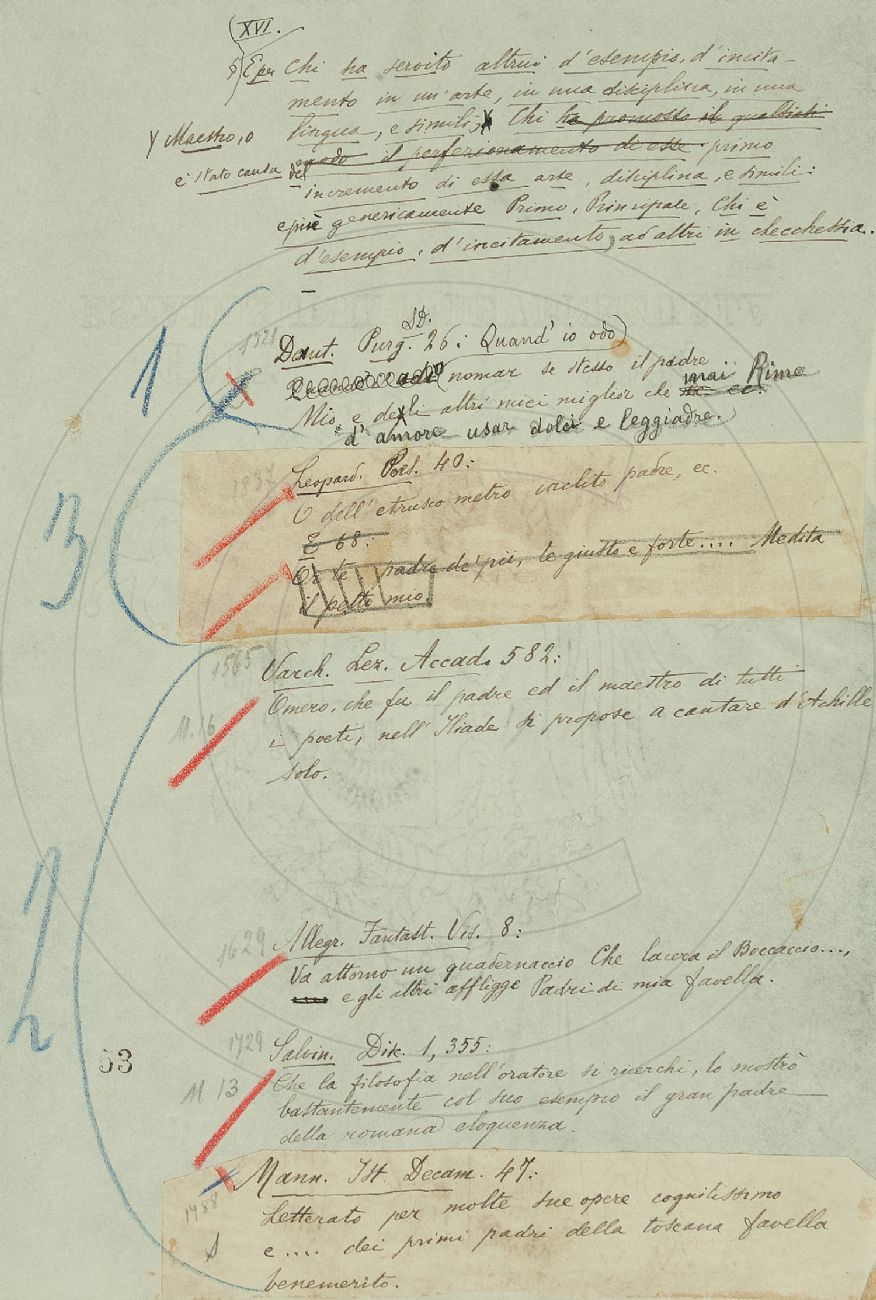 XVI.
§ E per Chi ha servito altrui d'esempio, d'incita-
mento in un'arte, in una disciplina, in una
lingua, e simili, Chi ha promosso il qualsisia
Y Maestro, o
modo il perfezionamento di esse primo
è stato causa del
incremento di essa arte, disciplina, e simili:
e più genericamente Primo, Principale, Chi è
d'esempio, d'incitamento, ad altri in checchessia.
1
1321
Dant. Purg. 26: Quand' io odo
SD.
nomar se stesso il padre
Mio, e degli altri miei miglior che mai Rime
ec. ec.
d' amore usar dolci e leggiadre.
3
1837
Leopard. Poes. 40:
O dell'etrusco metro inclito padre, ec.
E 68:
Or te padre de' pii, te giusto e forte.... Medita
il petto mio.
1565
Varch. Lez. Accad. 582:
Omero, che fu il padre ed il maestro di tutti
M. 16
i poeti, nell'Iliade si propose a cantare d'Achille
solo.
2
1629
Allegr. Fantast. Vis. 8:
Va attorno un quadernaccio Che lacera il Boccaccio...,
e gli altri affligge Padri di mia favella.
1729
Salvin. Disc. 1, 355:
63
M 13
Che la filosofia nell'oratore si ricerchi, lo mostrò
bastantemente col suo esempio il gran padre
della romana eloquenza.
Mann. Ist. Decam. 47:
1788
Letterato per molte sue opere cognitissimo
e.... dei primi padri della toscana favella
benemerito.